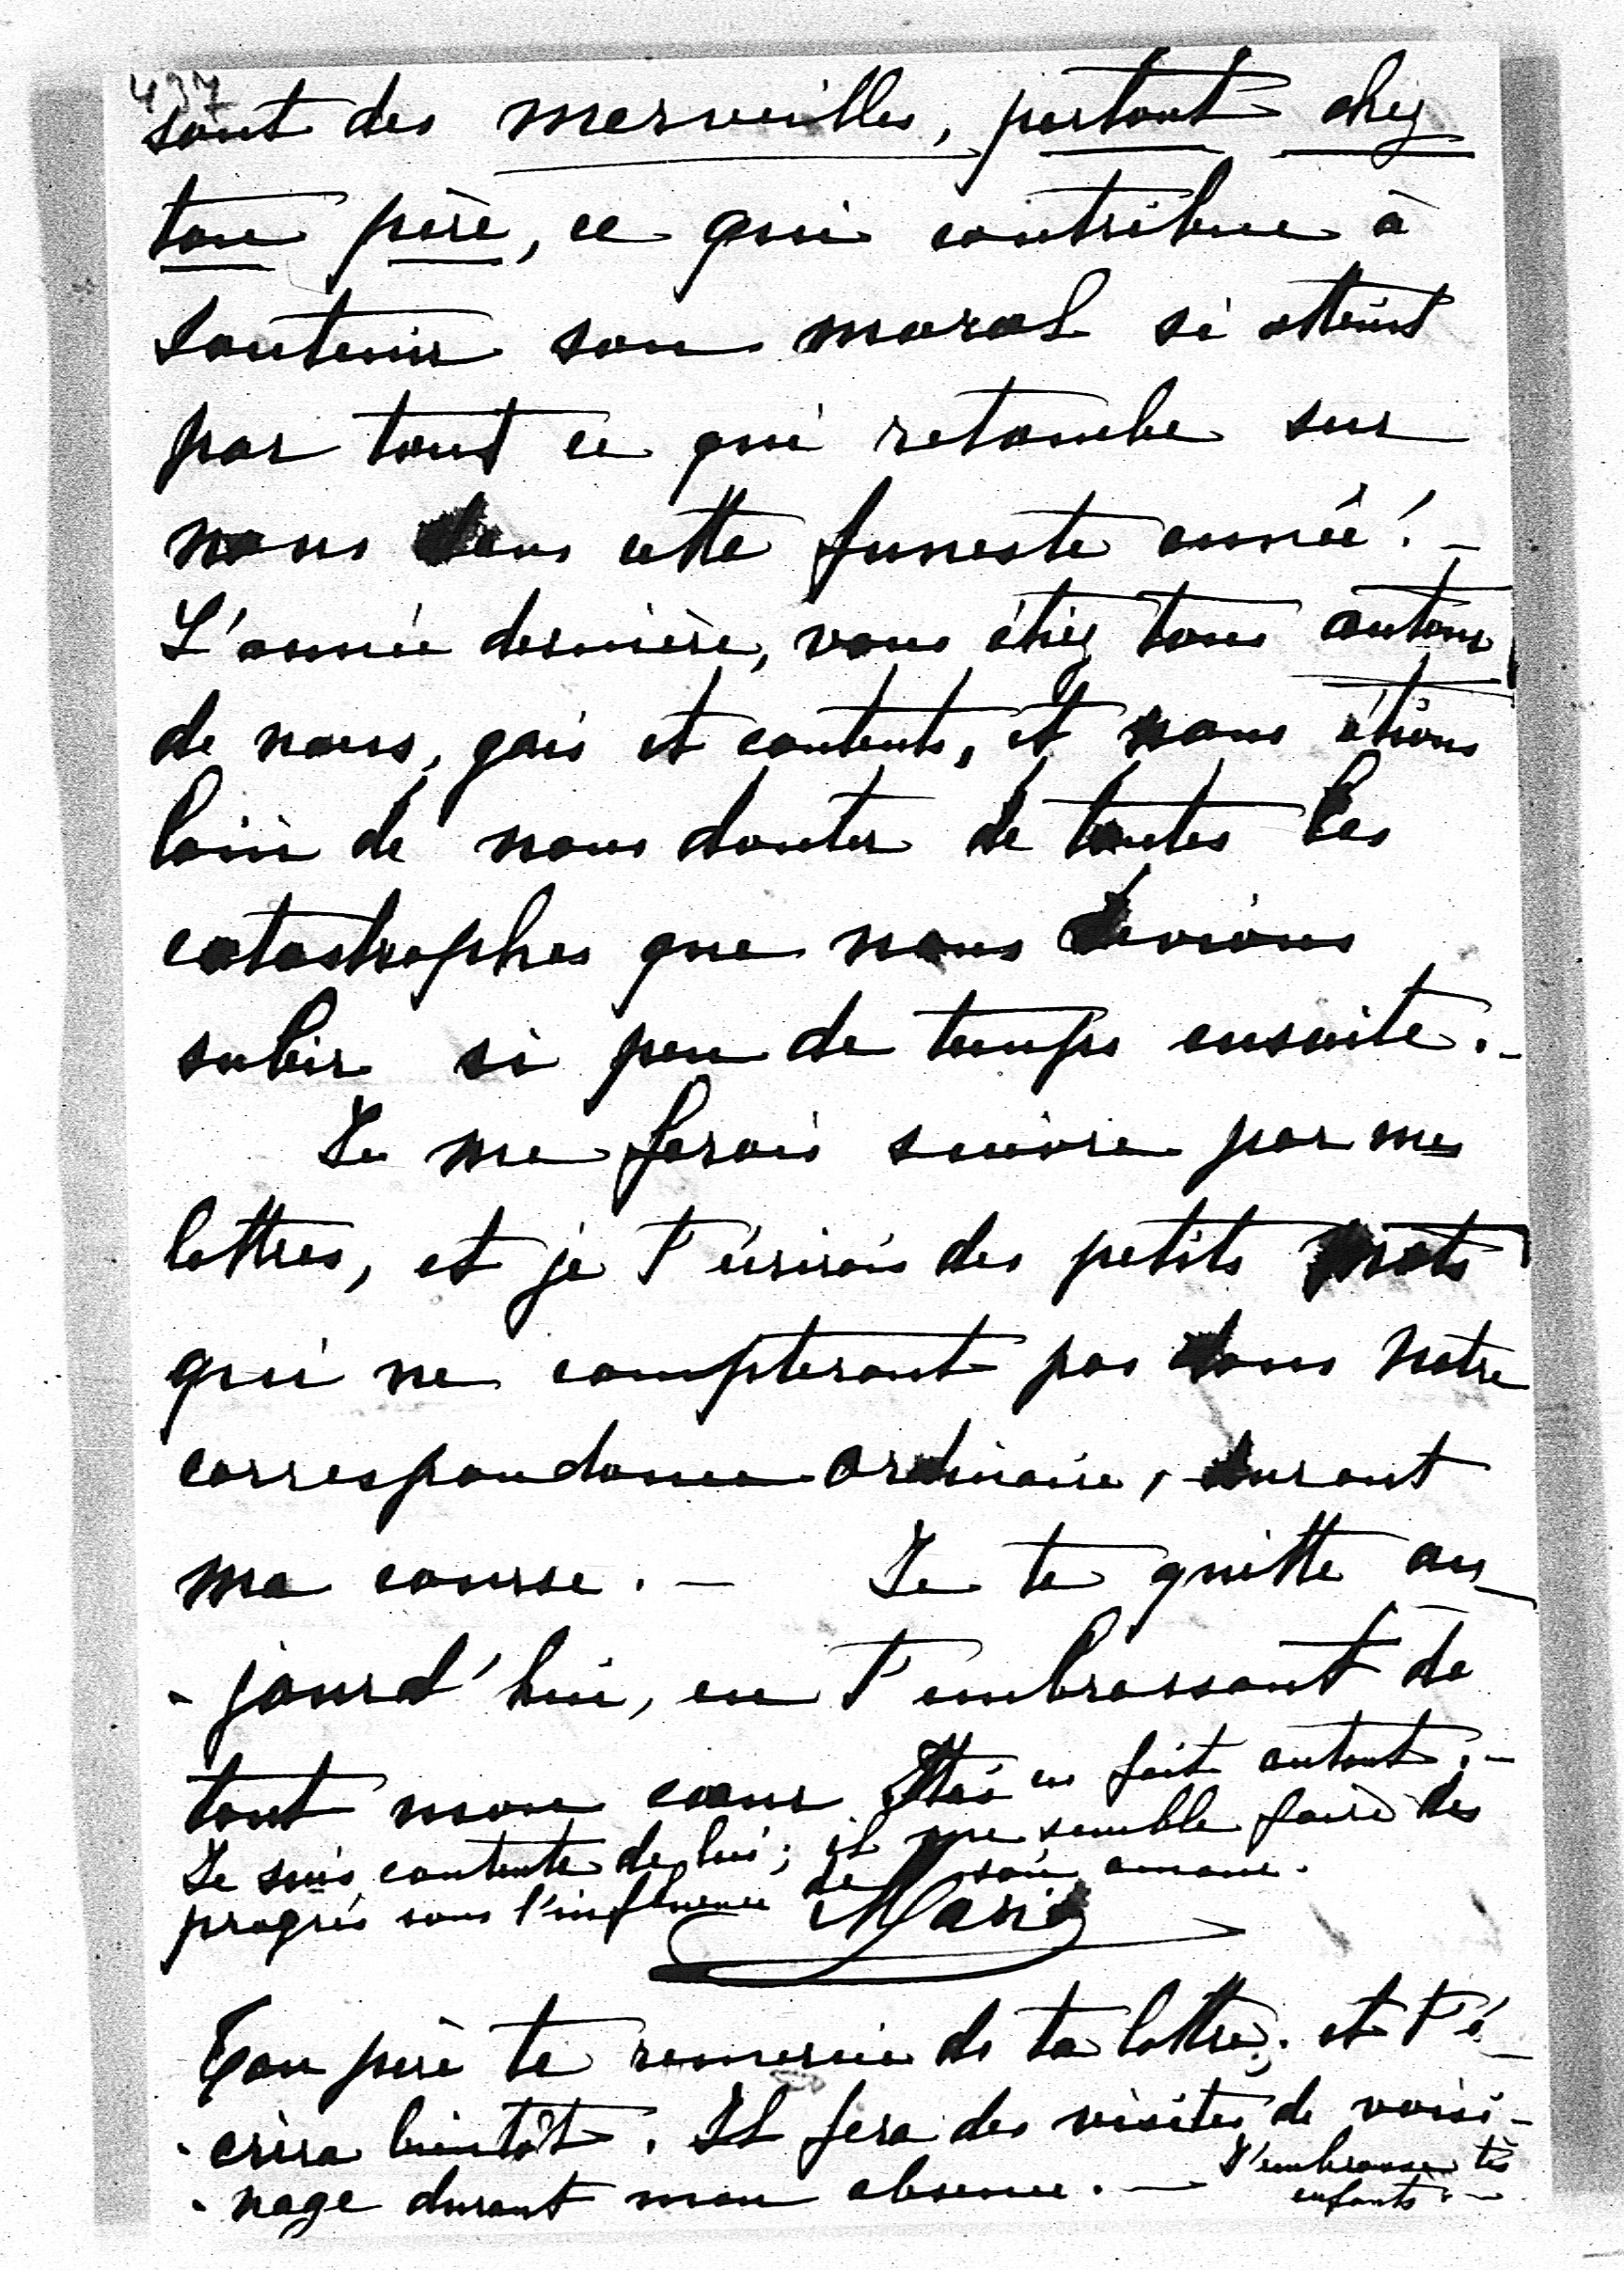 437
sont des merveilles, partout chez
ton père, ce qui contribue à
soutenir son moral si atteint
par tout ce qui retombe sur
nous dans cette funeste année! –
L'année dernière, vous étiez tous autour
de nous, gais et contents, et nous étions
loin de nous douter de toutes les
catastrophes que nous devions
subir si peu de temps ensuite. –
Je me ferais suivre par mes
lettres, et je t'écrirais des petits mots
qui ne compteront pas dans notre
correspondance ordinaire, durant
ma course. – Je te quitte au-
-jourd'hui, en t'embrassant de
tout mon cœur en fait autant. –
Je suis contente de lui; il me semble faire des
progrès sous l'influence de son
Marie
Ton père te remercie de ta lettre; et t'é-
-crira bientôt. Il fera des visites de voisi-
-nage durant mon absence. – J'embrasse tes
enfants. –